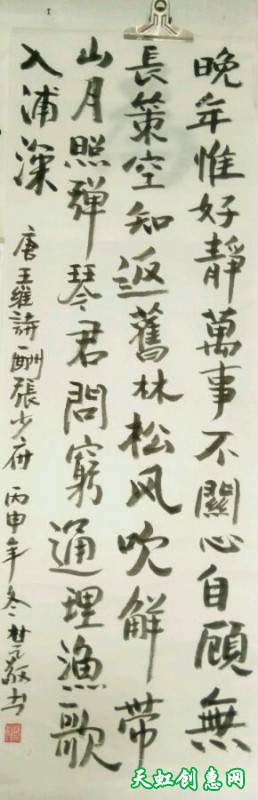 晚年惟好靜萬事不關心自顧無
長策空知返舊林松风吹解帶
山月照彈琴君問窮通理漁歌
入浦深
唐王維詩酬張少府 丙申年冬 书
天虹创惠网